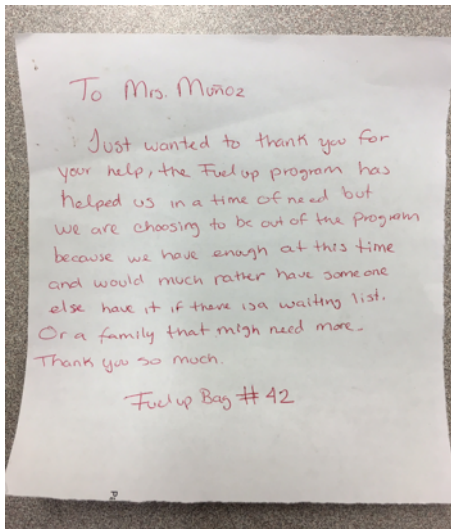 To Mrs. Muñoz
Just wanted to thank you for
your help, the Fuel up program has
helped us in a time of need but
we are choosing to be out of the program
because we have enough at this time
and would much rather have someone
else have it if there is a waiting list.
Or a family that migh need more.
Thank you so much.
Fuel up Bag # 42